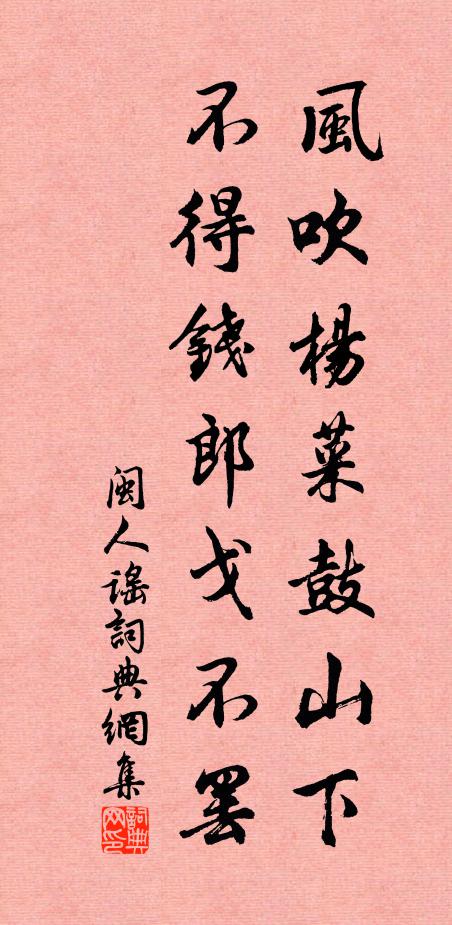 風吹楊菜鼓山下
不得錢郎戈不罷
閩人謠詞典網集
詞典网印